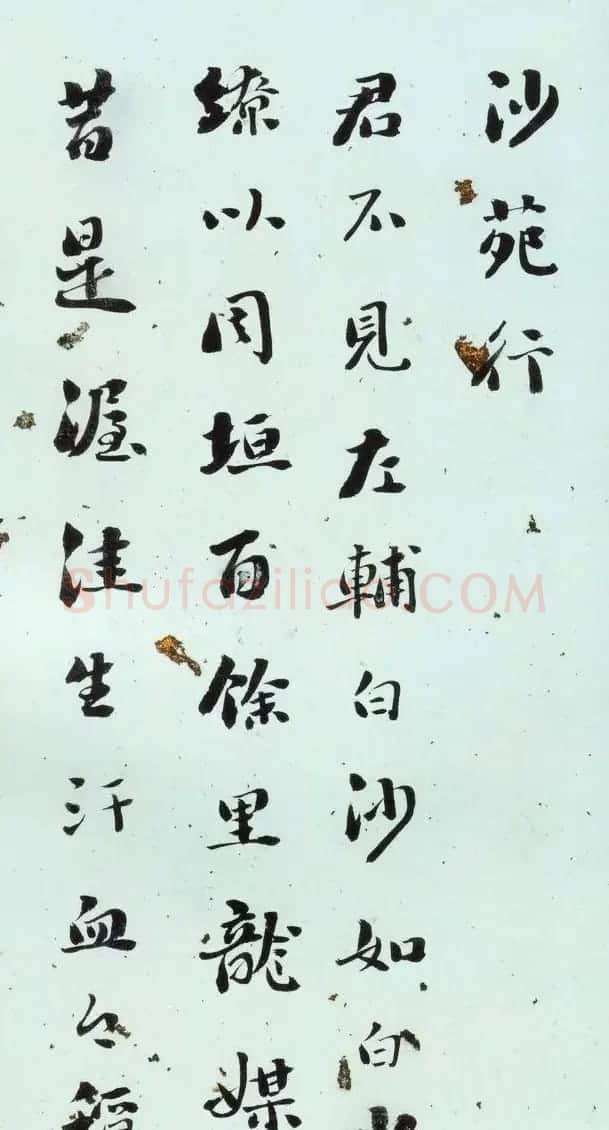 沙苑行
君不見左輔白沙如白
繚以周垣百餘里龍媒
昔是渥洼生汗血今
Shufaziliao.COM